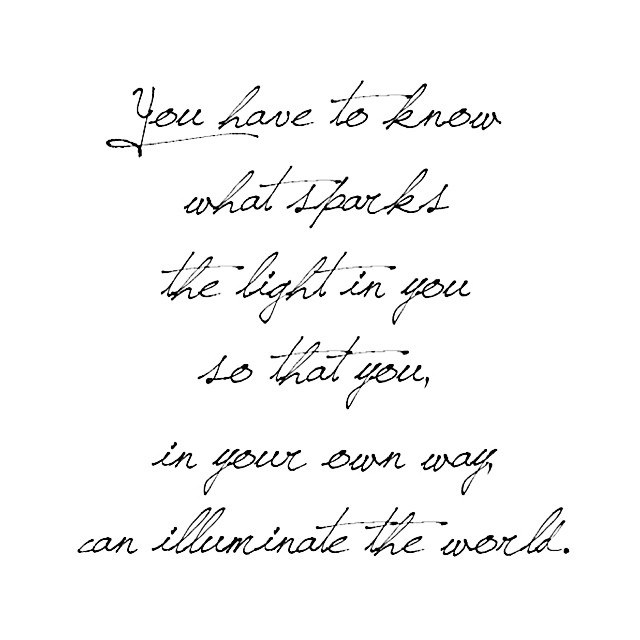 You have to know
what sparks
the light in you
so that you,
in your own way,
can illuminate the world.